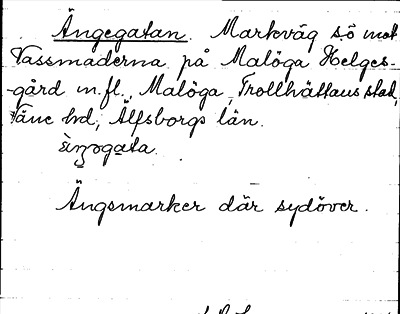 Ängegatan. Markväg sö mot
Vassmaderna på Malöga Helges-
-gård m.fl., Malöga, Trollhättans stad,
Väne hd, Älfsborgs län.
Ängsmarker där sydöver.